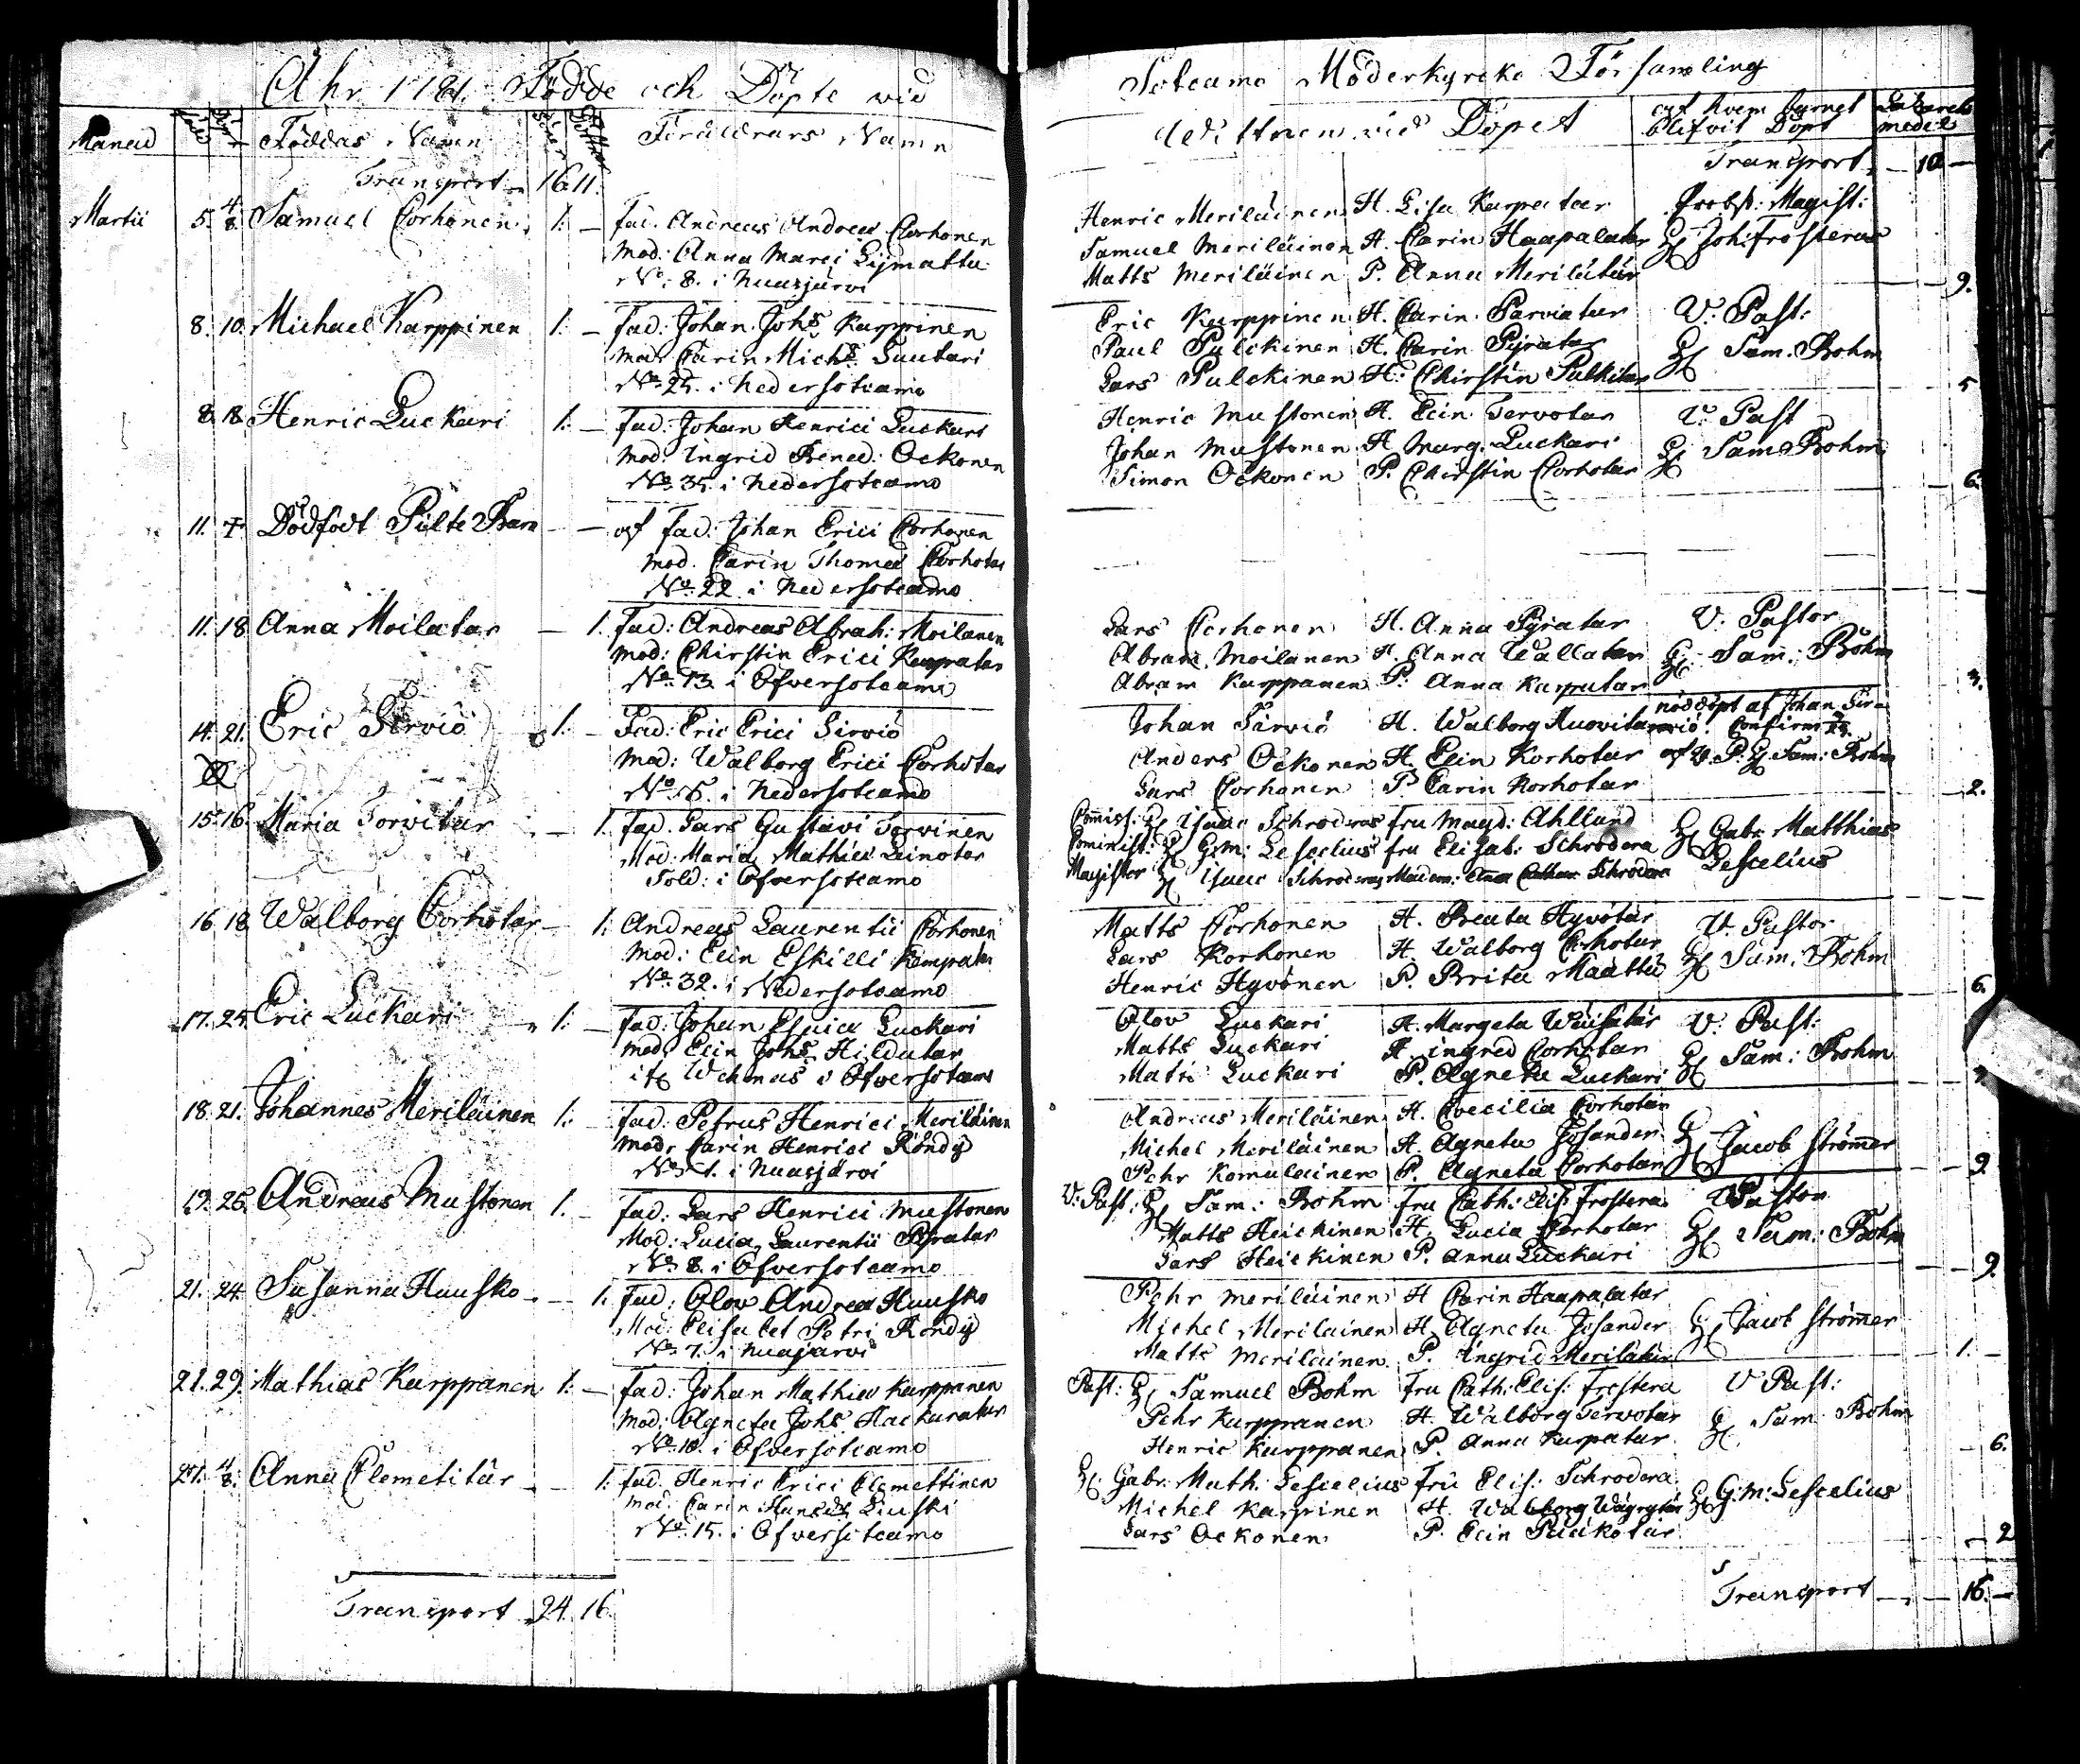 Åhr 1781. Födde och Döpte wid
Månad Födde Döpte Föddas Namn Söner Döttrar Föräldrars Namn
Transport 16. 11.
Martii 5. 4/8 Samuel Corhonen. 1. — fad. Andreas Andreæ Corhonen
mod: Anna Marci Lijmatta
No. 8. i Nuasjärvi
8. 10. Michael Karppinen 1. — fad: Johan Johs Karppinen
mod: Carin Michs Suutari
No. 25. i Nedersotcamo
8. 18. Henric Luckari 1: — fad: Johan Henrici Luckari
mod: Ingrid Bened: Ockonen
No. 35. i Nedersotcamo
11. + Dödfödt Pilte Barn — — af fad: Johan Erici Corhonen
mod. Carin Thomæ Corhotar
No. 22. i Nedersotcamo
11. 18 Anna Moilatar — 1. fad: Andreas Abrah: Moilanen
mod: Chirstin Erici Karpatar
No. 13. i Öfversotcamo
14. 21. Eric Sirviö 1: — Fad: Eric Erici Sirviö
mod: Walborg Erici Corhotar
i Nedersotcamo
15. 16. Maria Torvitar — 1. fad. Lars Gustavi Torvinen
Mod: Maria Mathiæ Leinotar
Sold: i Öfversotcamo
16 18 Walborg Corhotar — 1: Andreas Laurentii Corhonen
mod: Elin Eskilli
No. 32. i Nedersotcamo
17. 25. Eric Luckari 1: — fad: Johan Esaiæ Luckari
mod. Elin Johs Hildutar
i Öfversotcamo
18. 21. Johannes Meriläinen 1: fad: Petrus Henrici Meriläinen
mod: Carin Henrici Röndy
No. 1. i Nuasjärvi
19. 25. Andreas Mustonen 1. — fad: Lars Henrici Mustonen
Mod: Lucia Laurentii Pyratar
No. 8. i Öfversotcamo
21. 24. Susanna Huusko — 1. fad: Olov Andreæ Huusko
Mod: Elisabet Petri Röndy
No. 7. i Nuasjärvi
21. 29. Mathias Karppanen 1: — fad: Johan Mathiæ Karppanen
mod: Agneta Johs Hackaratar
No. 10. i Öfversotcamo
27. 4/8: Anna Clemetitär — 1: fad. Henric Erici Clemettinen
mod. Carin Liuski
No. 15. i Öfversotcamo
Transport 24. 16.
Sotcamo Moderkyrcko Församling
Wittnen vid Döpet af hvem barnet blefvit Döpt Lazarets medel
Transport — 10 —
Henric Meriläinen H. Lisa Karpatar Probst: Magist:
Samuel Meriläinen H. Carin Haapalatar H Joh: Frosterus
Matts Meriläinen P. Anna Merilätär — 9.
Eric Karppinen H. Carin Parviatar V. Past:
Paul Pulckinen H. Carin Pyratar H Sam. Bohm
Lars Pulckinen H: Chirstin Pulkitar — 5
Henric Mustonen H. Elin Tervotar V: Past
Johan Mustonen H Marg. Luckari H Sam Bohm
Simon Ockonen P. Chirstin Corhotar — 6.
Lars Corhonen H. Anna Pyratar V. Pastor
Abram Moilanen H. Anna Wallatar H Sam: Bohm
Abram Karppanen P. Anna Karpatar — 3.
Johan Sirviö H. Walborg Huovitar nöddöpt af Johan Sir-
viö. Confirm
Anders Ockonen H. Elin Korhotar af V. P. H Sam: Bohm
Lars Corhonen P Carin Korhotar — 2.
Commiss: H Isaac Schroderus fru Magd: Ahllund H Gabr. Matthias
Cominist: H G:m: Lescelius fru Elisab: Schrodera Lescelius
Magister H Isaac Schroderus Madem: Schrodera
Matts Corhonen H. Beata Hyvötär V. Pastor
Lars Korhonen H. Walborg Corhotar H Sam. Bohm
Henric Hyvönen P. Brita Määttä — 6.
Olov Luckari H. Margeta Wäisätär V. Past:
Matts Luckari H. ingred Corhotar H Sam: Bohm
Matts Luckari P. Agneta Luckari
Andreas Meriläinen H. Cecilia Corhotar
Michel Meriläinen H. Agneta Josander H Jacob Strömer
Pehr Komulainen P. Agneta Corhotar — 9.
V: Past: H Sam: Bohm fru Cath: Elis: Frostera V Pastor
Matts Heickinen H Lucia Corhotar H Sam: Bohm
Lars Heickinen P. Anna Luckari — 9.
Pehr Meriläinen H Carin Haapalatar
Michel Meriläinen H. Agneta Josander H Jacob Strömer
Matts Meriläinen P. Ingrid Merilätär — 1. —
Past: H Samuel Bohm Fru Cath: Elis: Frostera V Past:
Pehr Karppanen H. Walborg Tervotar H Sam Bohm
Henric Karppanen P. Anna Karpatar — 6.
H Gabr: Math: Lescelius Fru Elis: Schrodera H G:m: Lescelius
Michel Karpinen H. Walborg
Lars Ockonen P. Elin — 2
Transport — 16. —